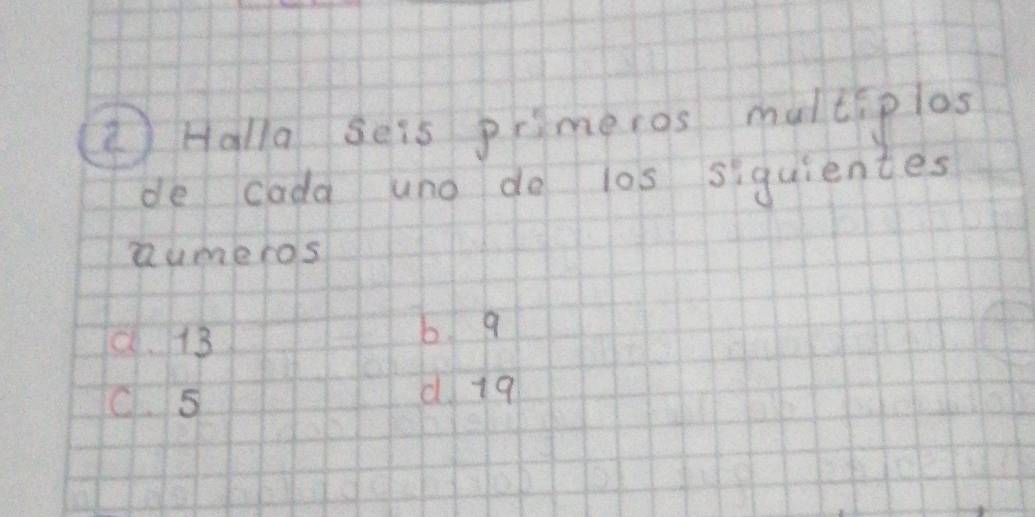 2 Halla seis primeros multiplos
de cada uno de los siguientes
numeros
a. 13 b. 9
c. 5 d. 19